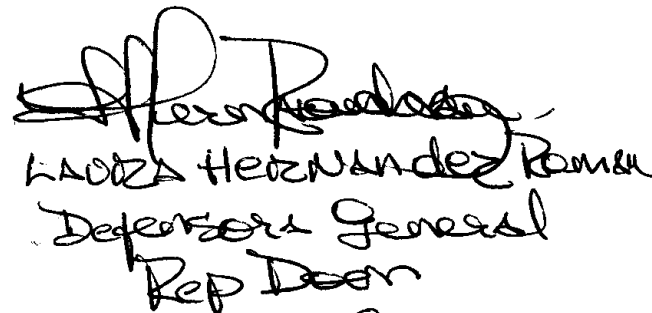 LAURA HERNANDEZ ROMAN
Defensora General
Rep Dom